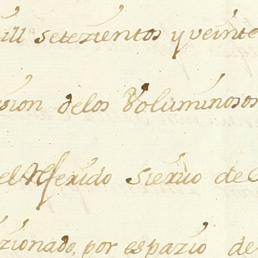 mill setezientos y veinte
sion delos Voluminosos
el Referido Siervo de
zionado, por espazio de